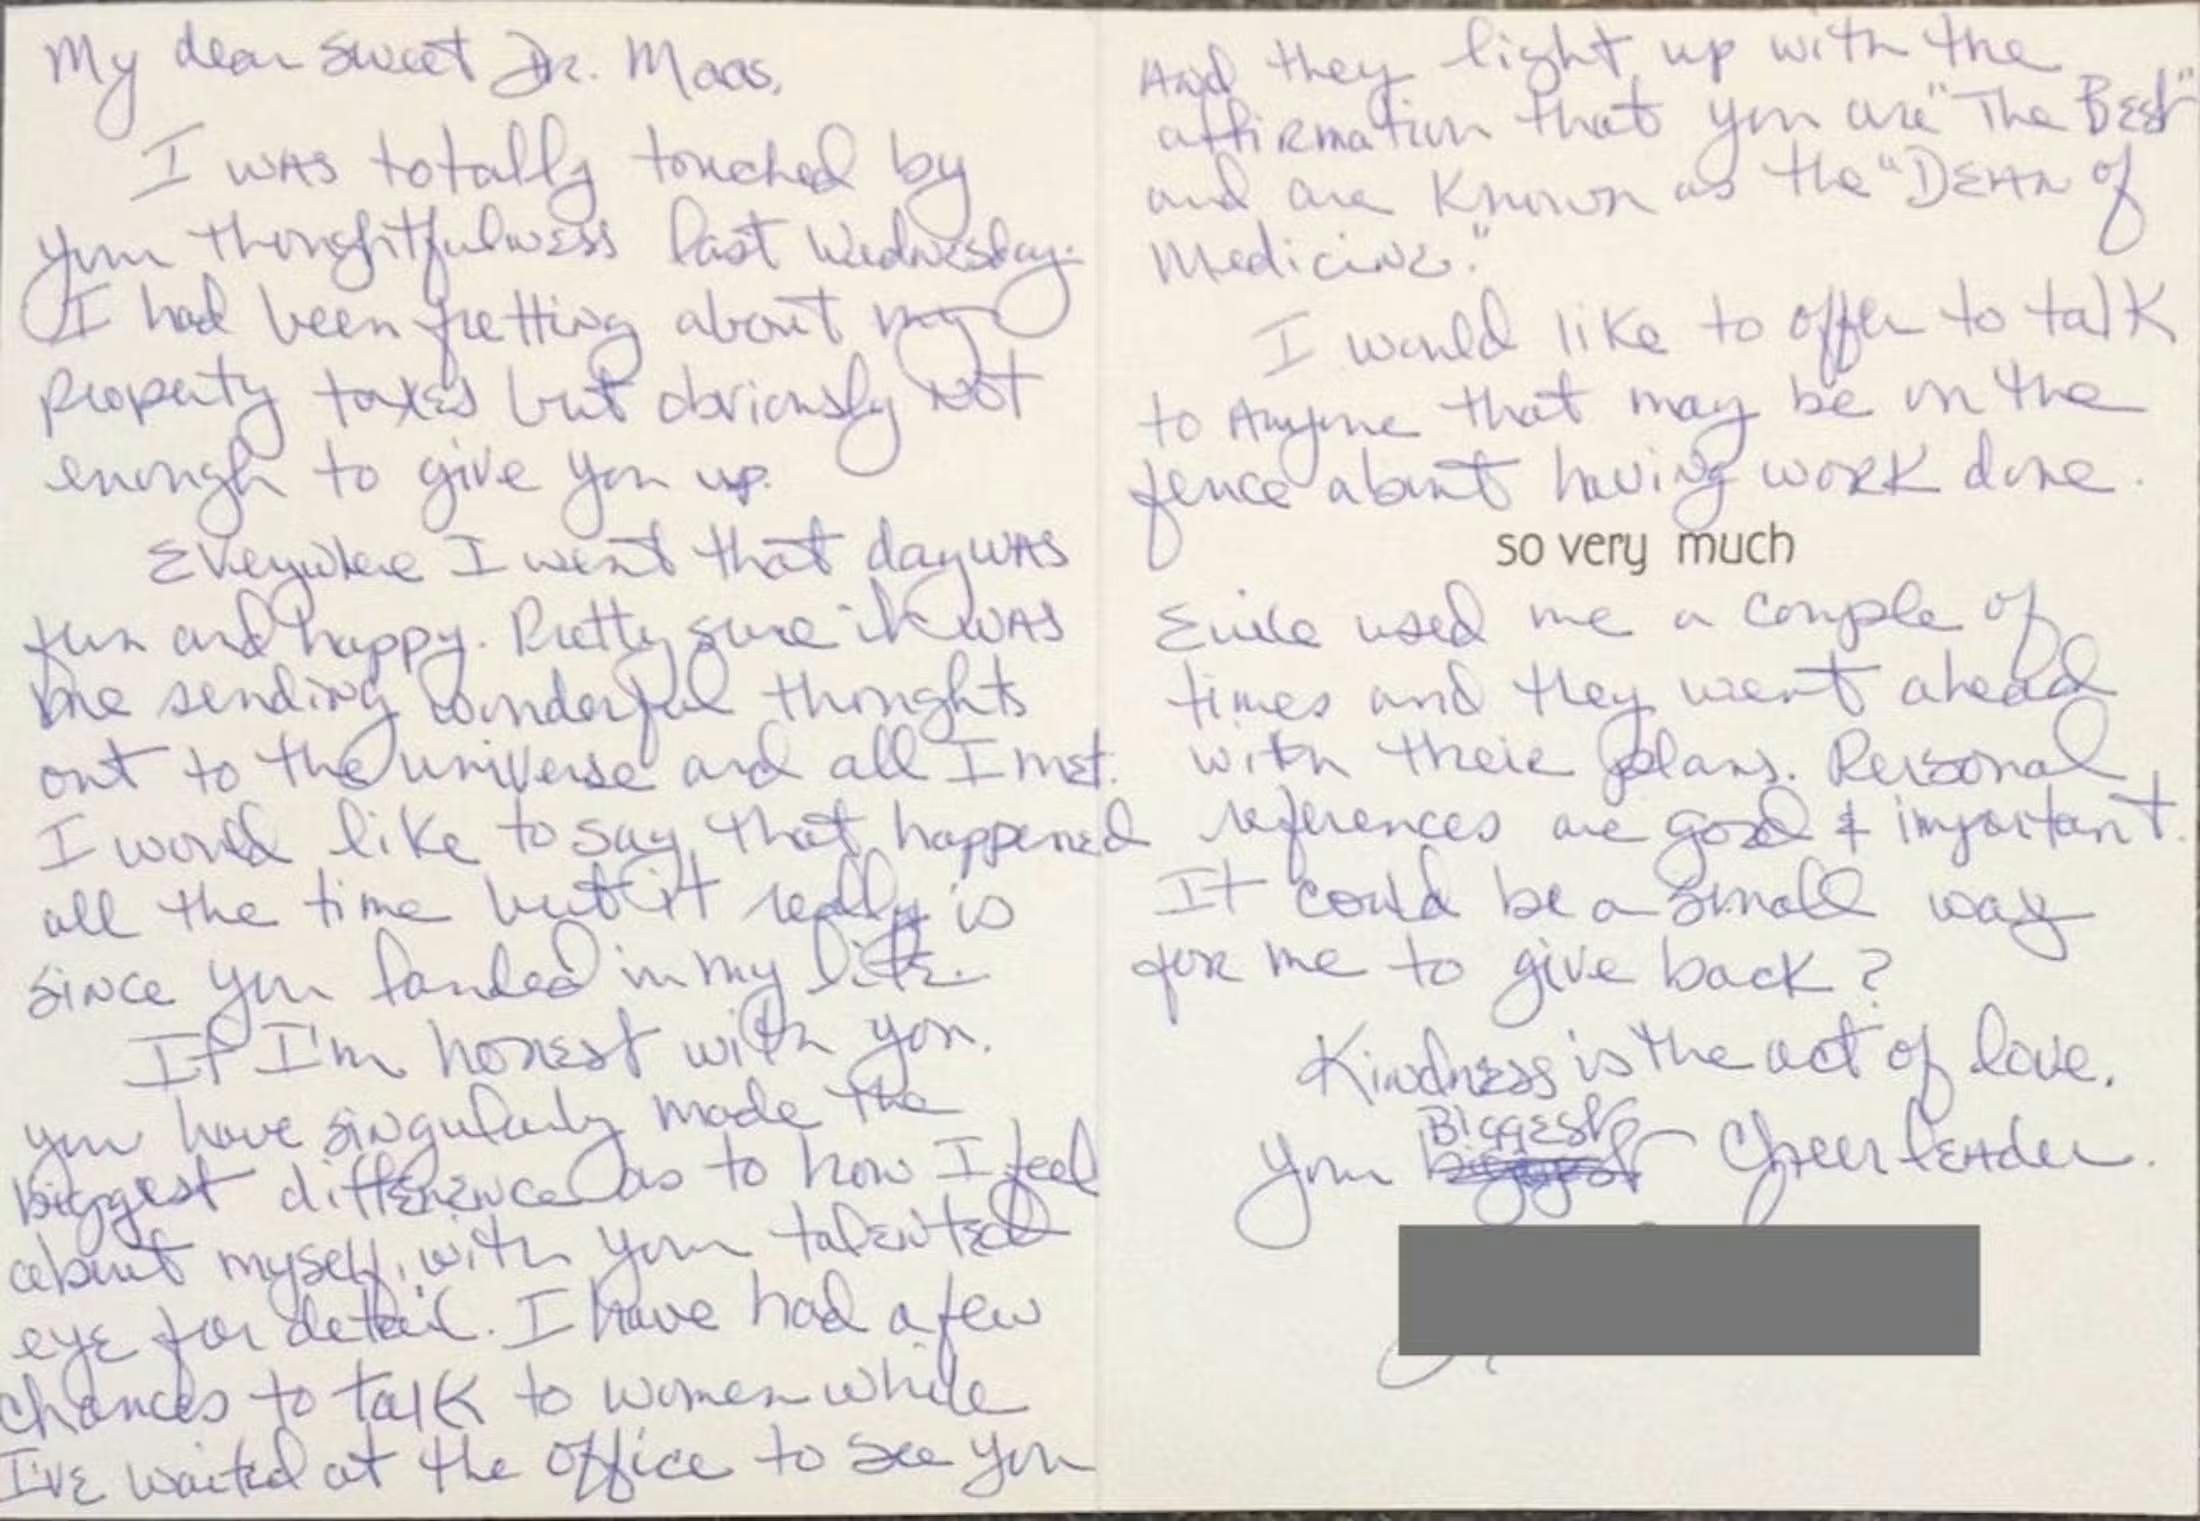 My dear sweet Dr. Maas,
I was totally touched by
your thoughtfulness last Wednesday.
I had been fretting about my
property taxes but obviously not
enough to give you up.
Everywhere I went that day was
fun and happy. Pretty sure it was
me sending wonderful thoughts
out to the universe and all I met.
I would like to say that happened
all the time but it really is
since you landed in my life.
If I'm honest with you.
you have singularly made the
biggest difference as to how I feel
about myself, with your talented
eye for detail. I have had a few
chances to talk to women while
I've waited at the office to see you
And they light up with the
affirmation that you are "The Best"
and are known as the "DEAN of
Medicine."
I would like to offer to talk
to Anyone that may be on the
fence about having work done.
so very much
used me a couple of
times and they went ahead
with their plans. Personal
references are good & important.
It could be a small way
for me to give back?
Kindness is the act of love.
Biggest
Your biggest Cheerleader.